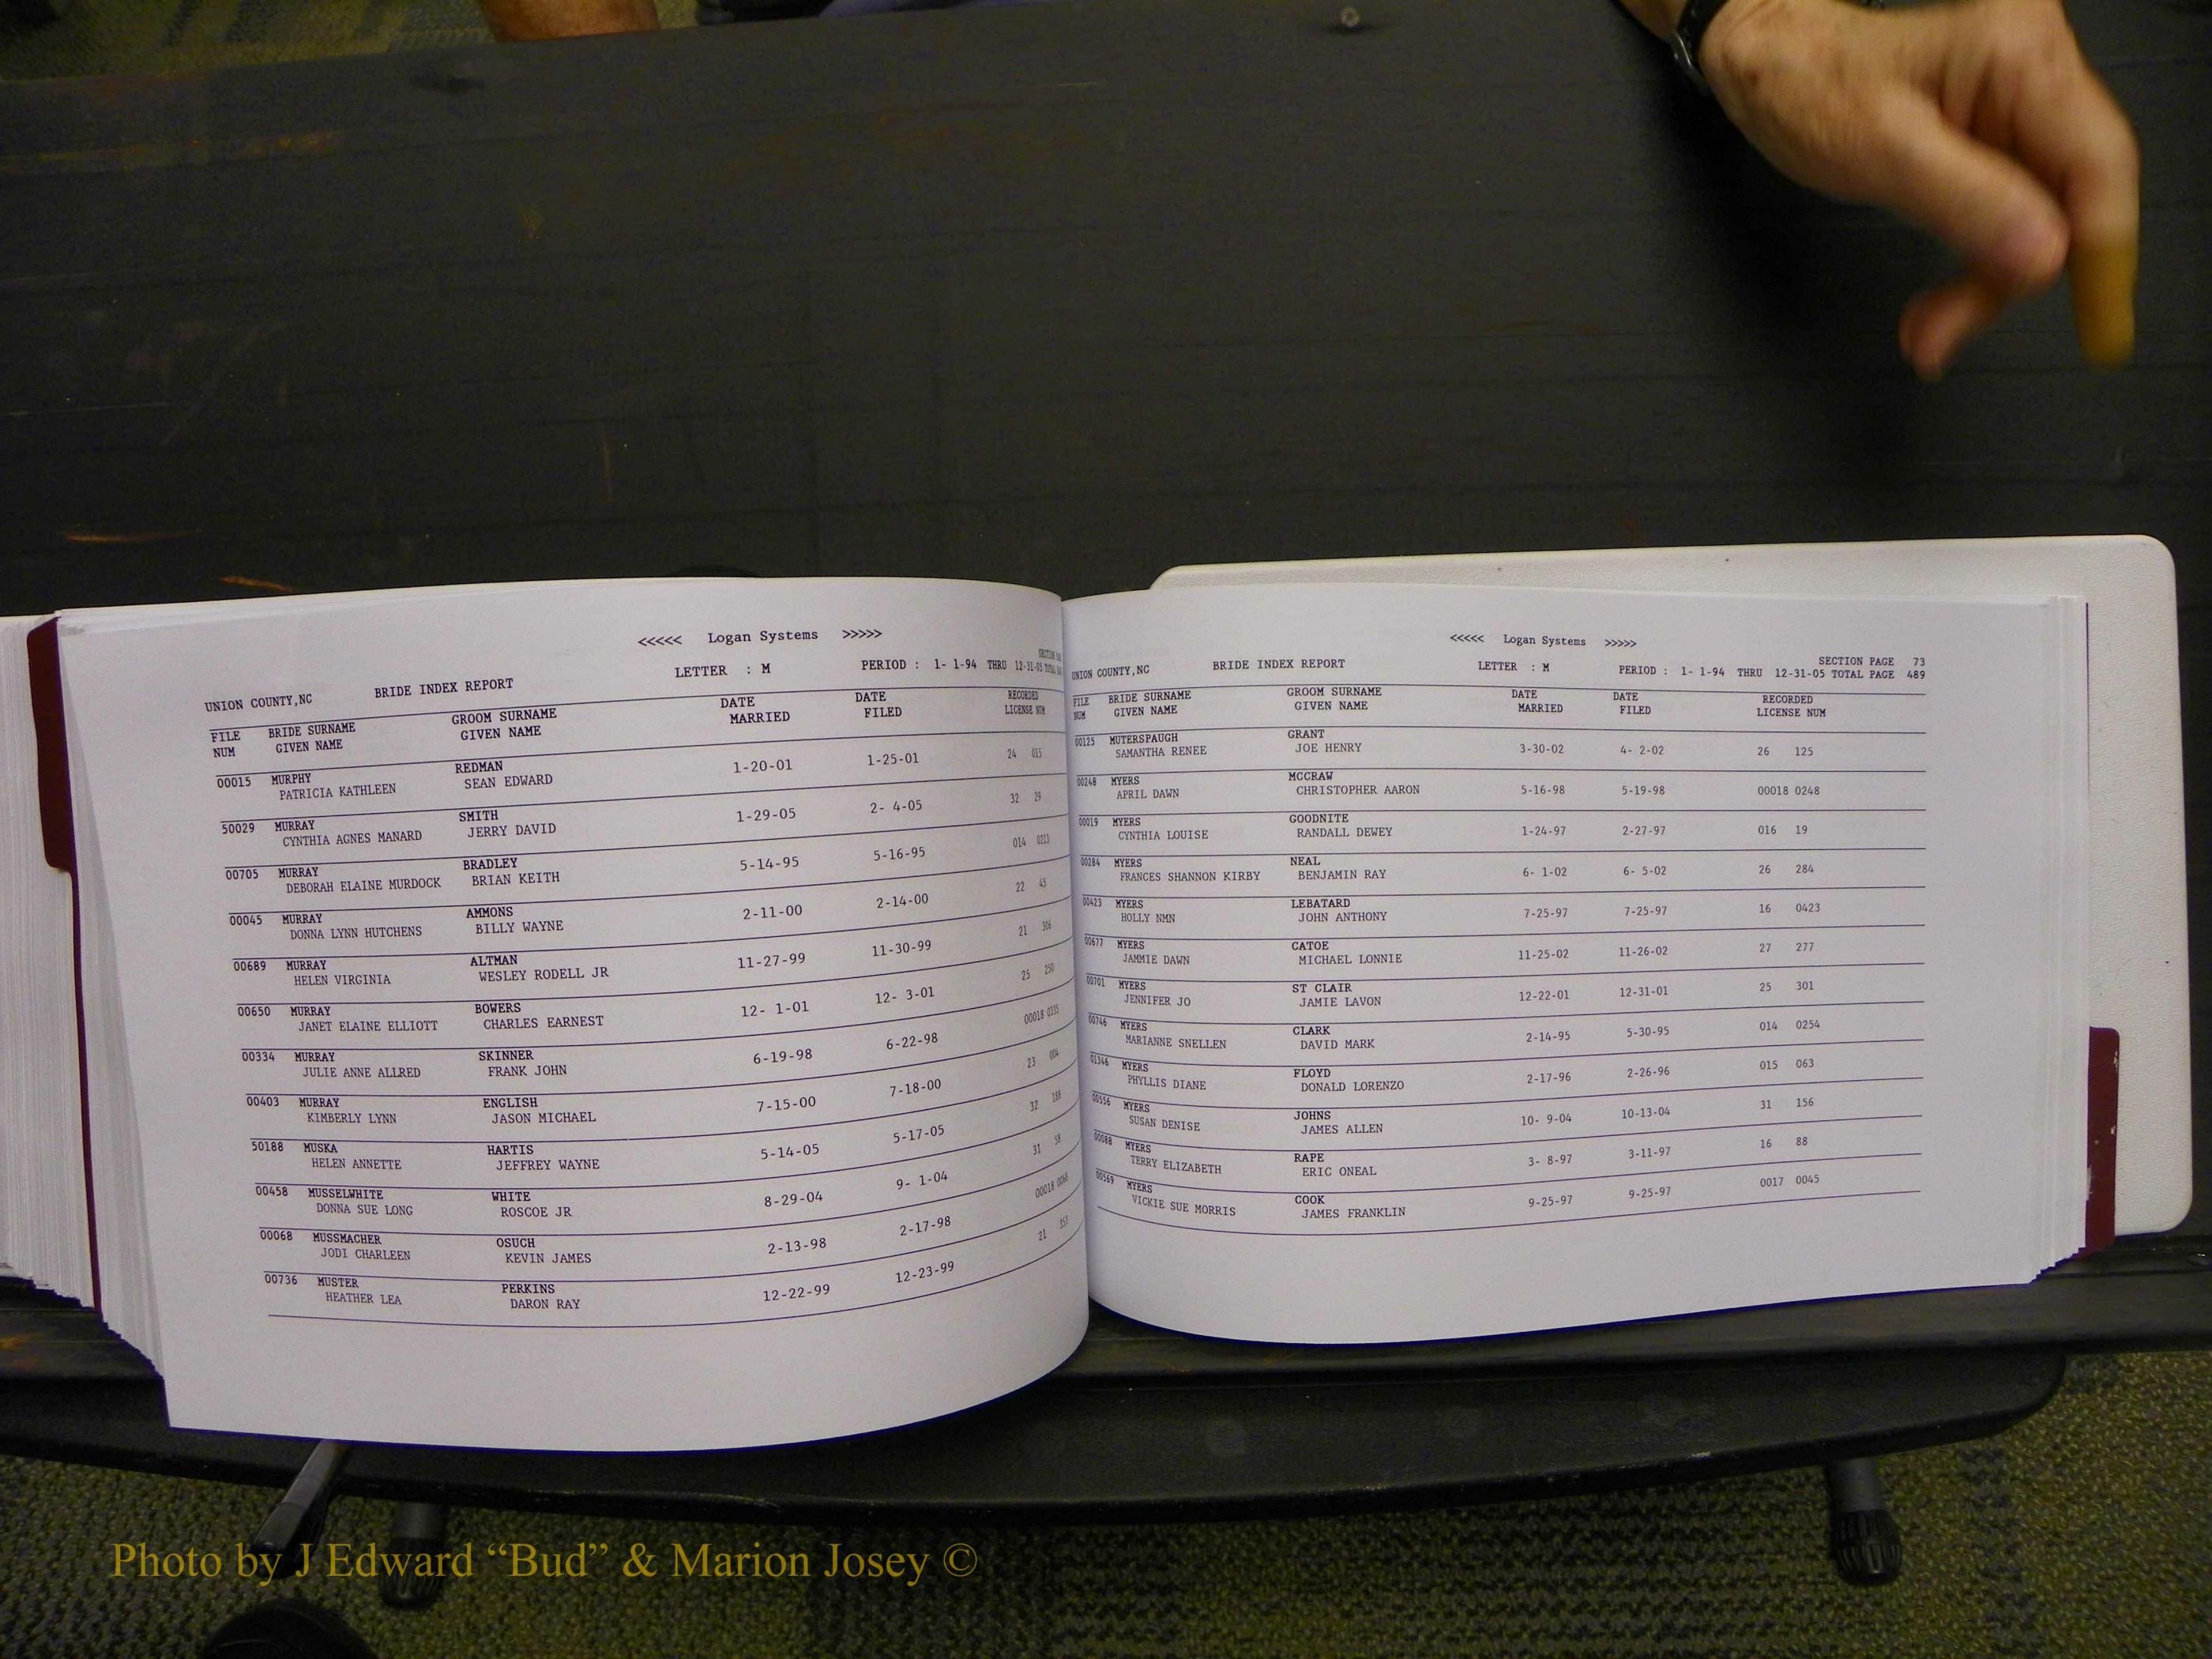 <<<<< Logan Systems >>>>>
UNION COUNTY,NC BRIDE INDEX REPORT LETTER : M PERIOD : 1- 1-94 THRU 12-31-05 TOTAL
SECTION
FILE BRIDE SURNAME GROOM SURNAME DATE DATE RECORDED
NUM GIVEN NAME GIVEN NAME MARRIED FILED LICENSE NUM
00015 MURPHY REDMAN 1-20-01 1-25-01 24 015
PATRICIA KATHLEEN SEAN EDWARD
50029 MURRAY SMITH 1-29-05 2- 4-05 32 29
CYNTHIA AGNES MANARD JERRY DAVID
00705 MURRAY BRADLEY 5-14-95 5-16-95 014 0213
DEBORAH ELAINE MURDOCK BRIAN KEITH
00045 MURRAY AMMONS 2-11-00 2-14-00 22 45
DONNA LYNN HUTCHENS BILLY WAYNE
00689 MURRAY ALTMAN 11-27-99 11-30-99 21 306
HELEN VIRGINIA WESLEY RODELL JR
00650 MURRAY BOWERS 12- 1-01 12- 3-01 25 250
JANET ELAINE ELLIOTT CHARLES EARNEST
00334 MURRAY SKINNER 6-19-98 6-22-98 00018
JULIE ANNE ALLRED FRANK JOHN
00403 MURRAY ENGLISH 7-15-00 7-18-00 23 004
KIMBERLY LYNN JASON MICHAEL
50188 MUSKA HARTIS 5-14-05 5-17-05 32 188
HELEN ANNETTE JEFFREY WAYNE
00458 MUSSELWHITE WHITE 8-29-04 9- 1-04 31 58
DONNA SUE LONG ROSCOE JR
00068 MUSSMACHER OSUCH 2-13-98 2-17-98 00018 0068
JODI CHARLEEN KEVIN JAMES
00736 MUSTER PERKINS 12-22-99 12-23-99 21 353
HEATHER LEA DARON RAY
<<<<< Logan Systems >>>>>
SECTION PAGE 73
UNION COUNTY,NC BRIDE INDEX REPORT LETTER : M PERIOD : 1- 1-94 THRU 12-31-05 TOTAL PAGE 489
FILE BRIDE SURNAME GROOM SURNAME DATE DATE RECORDED
NUM GIVEN NAME GIVEN NAME MARRIED FILED LICENSE NUM
00125 MUTERSPAUGH GRANT 3-30-02 4- 2-02 26 125
SAMANTHA RENEE JOE HENRY
00248 MYERS MCCRAW 5-16-98 5-19-98 00018 0248
APRIL DAWN CHRISTOPHER AARON
00019 MYERS GOODNITE 1-24-97 2-27-97 016 19
CYNTHIA LOUISE RANDALL DEWEY
00284 MYERS NEAL 6- 1-02 6- 5-02 26 284
FRANCES SHANNON KIRBY BENJAMIN RAY
00423 MYERS LEBATARD 7-25-97 7-25-97 16 0423
HOLLY NMN JOHN ANTHONY
00677 MYERS CATOE 11-25-02 11-26-02 27 277
JAMMIE DAWN MICHAEL LONNIE
00701 MYERS ST CLAIR 12-22-01 12-31-01 25 301
JENNIFER JO JAMIE LAVON
00746 MYERS CLARK 2-14-95 5-30-95 014 0254
MARIANNE SNELLEN DAVID MARK
01346 MYERS FLOYD 2-17-96 2-26-96 015 063
PHYLLIS DIANE DONALD LORENZO
00556 MYERS JOHNS 10- 9-04 10-13-04 31 156
SUSAN DENISE JAMES ALLEN
00088 MYERS RAPE 3- 8-97 3-11-97 16 88
TERRY ELIZABETH ERIC ONEAL
00569 MYERS COOK 9-25-97 9-25-97 0017 0045
VICKIE SUE MORRIS JAMES FRANKLIN
Photo by J Edward “Bud” & Marion Josey ©